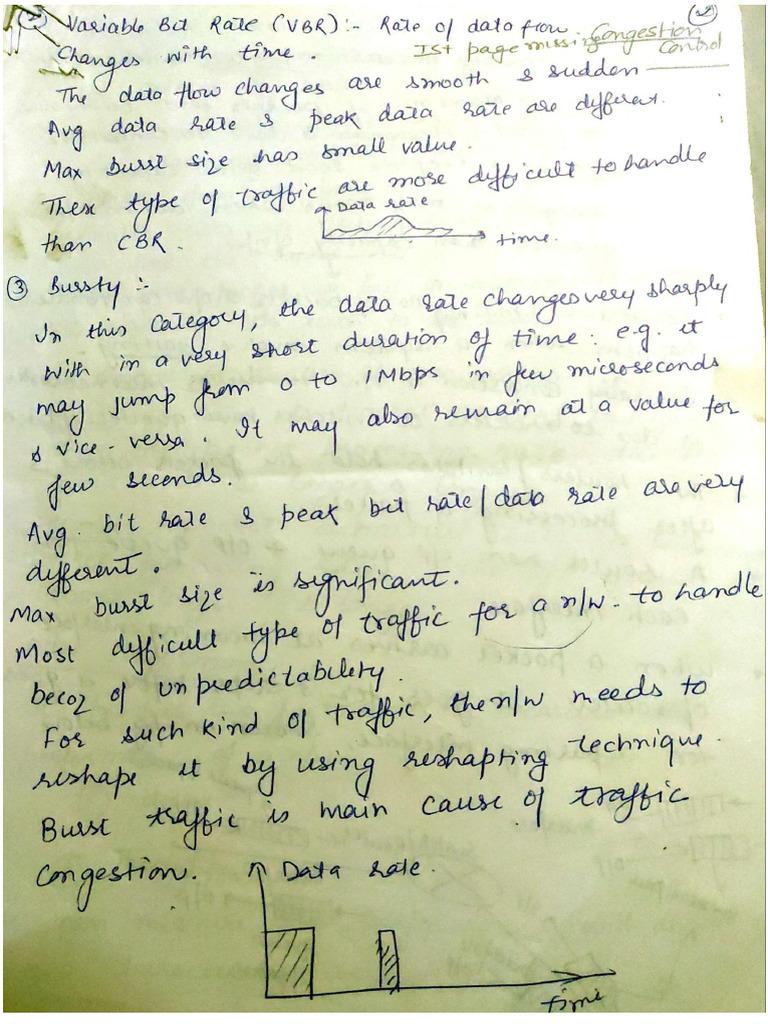 ② Variable Bit Rate (VBR) :- Rate of data flow
Changes with time.
Ist page missing Congestion
Control
The data flow changes are smooth & sudden
Avg data rate & peak data rate are different.
Max burst size has small value.
These type of traffic are more difficult to handle
than CBR.
Data rate
time.
③ Bursty :-
In this Category, the data rate changes very sharply
with in a very short duration of time: e.g. it
may jump from 0 to 1Mbps in few microseconds
& vice-versa. It may also remain at a value for
few seconds.
Avg. bit rate & peak bit rate/data rate are very
different.
Max burst size is significant.
Most difficult type of traffic for a n/w. to handle
becoz of unpredictability.
For such kind of traffic, the n/w needs to
reshape it by using reshapting technique.
Burst traffic is main cause of traffic
Congestion.
Data rate.
time